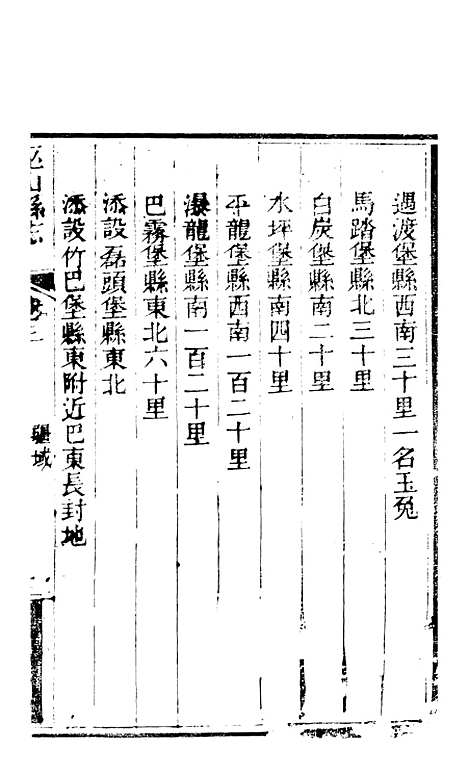 遇渡堡縣西南三十里一名玉兔
馬踏堡縣北三十里
白炭堡縣南二十里
水坪堡縣南四十里
平龍堡縣西南一百二十里
瀑龍堡縣南一百二十里
巴霧堡縣東北六十里
添設磊頭堡縣東北
添設竹巴堡縣東附近巴東長封地
巫山縣志 卷之三 疆域